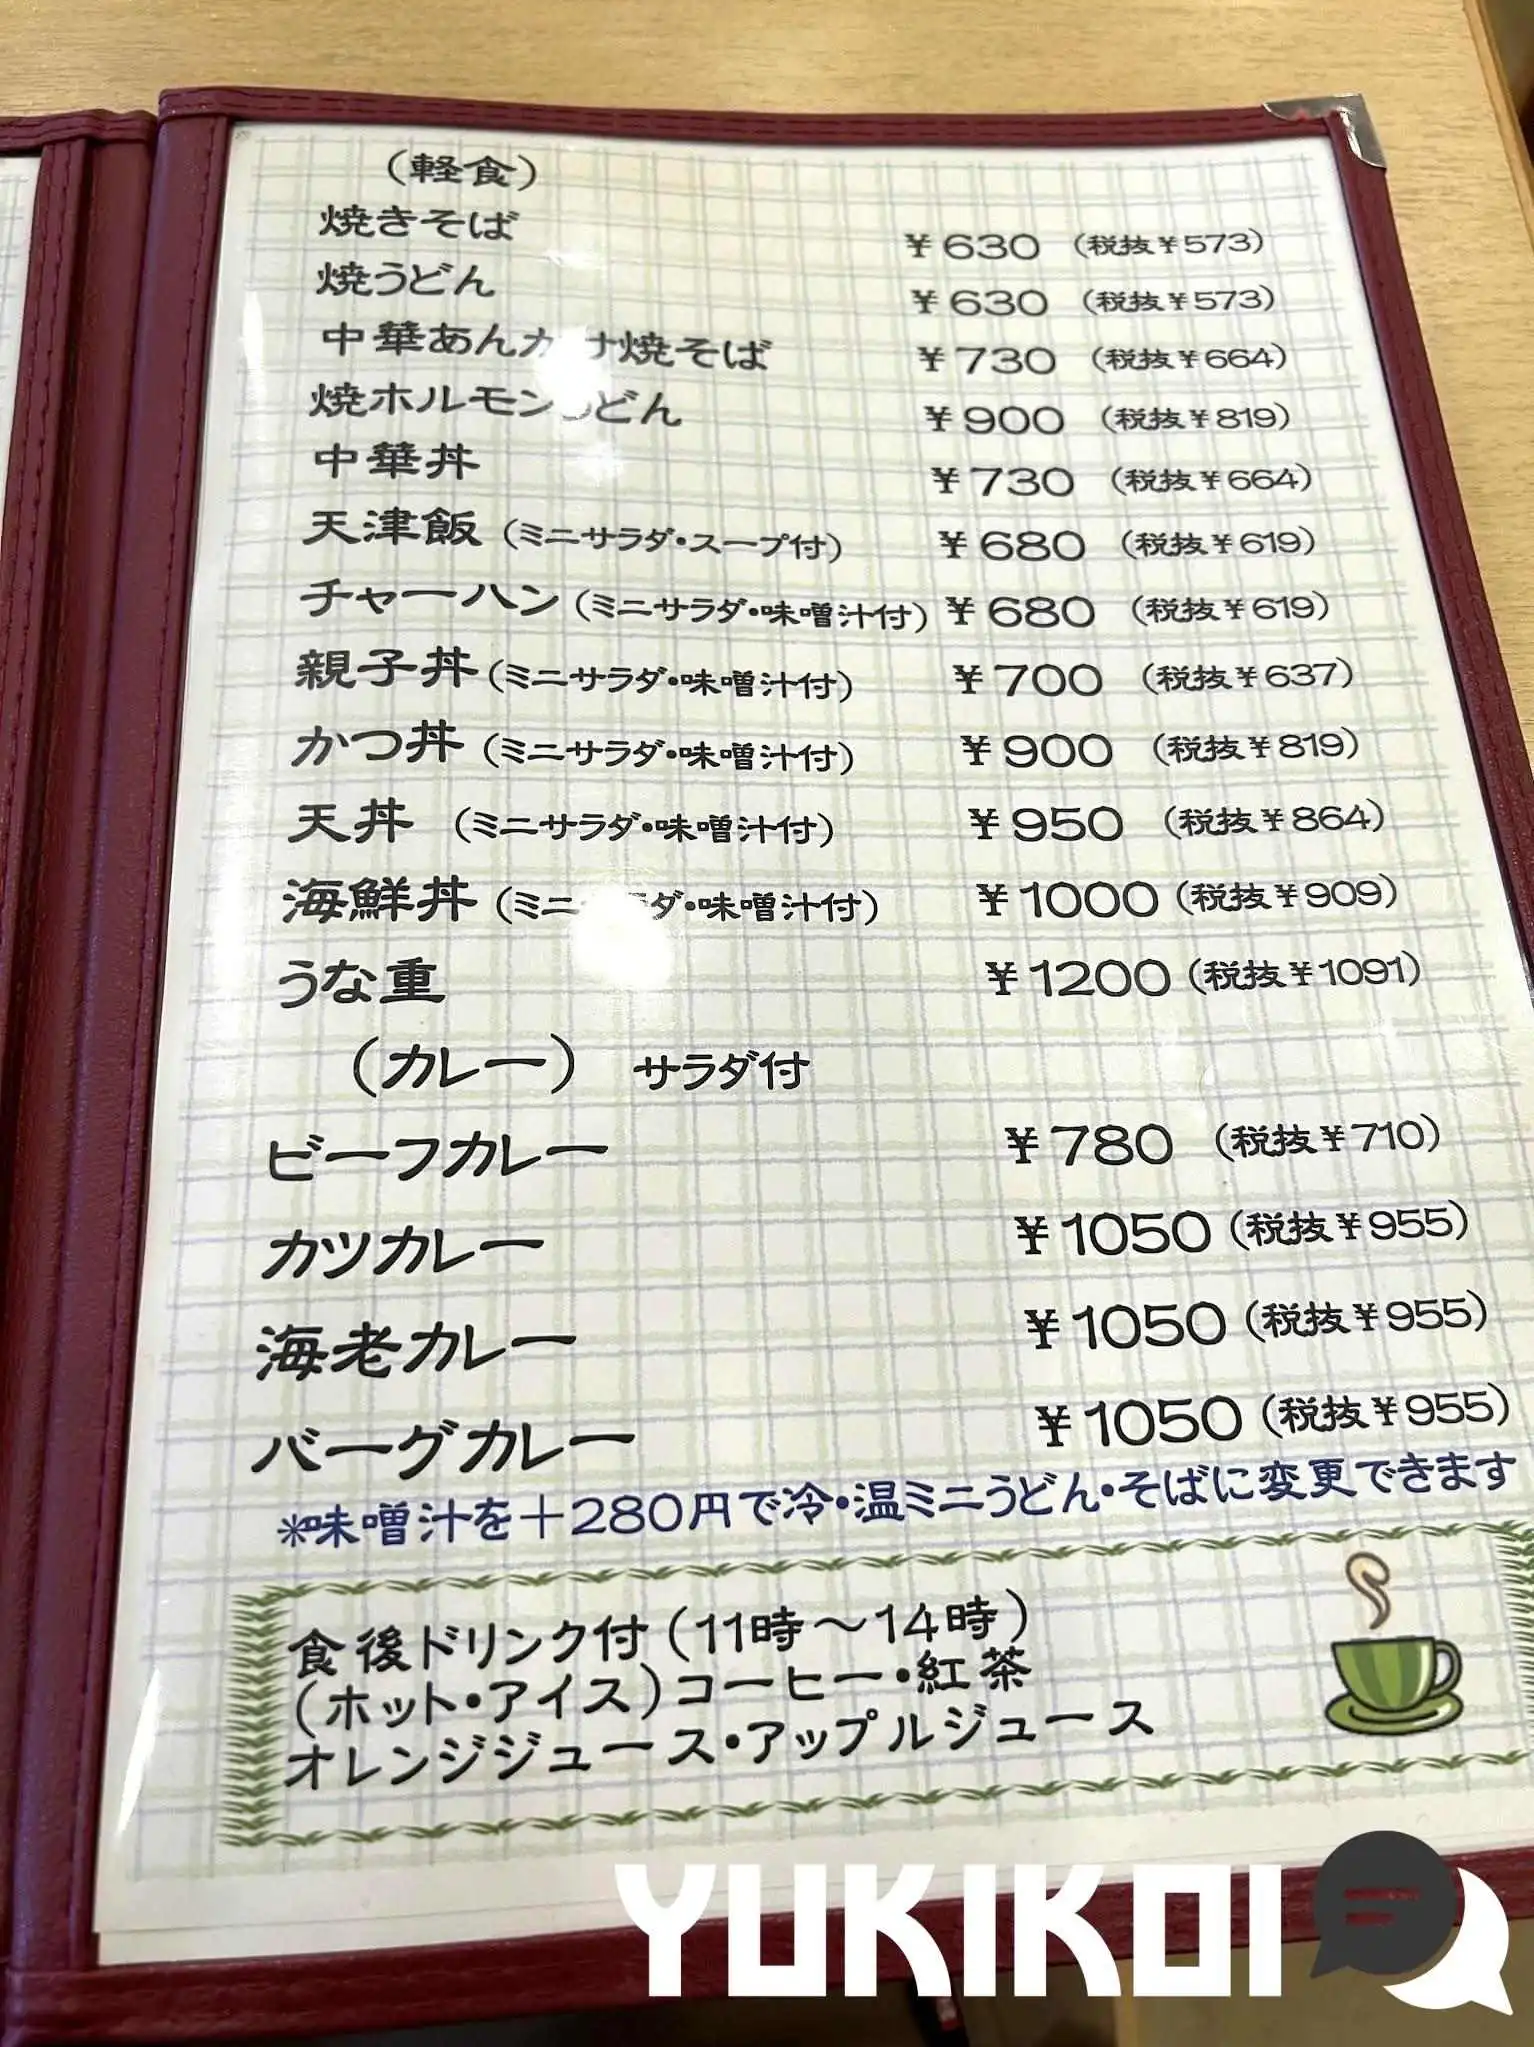 (軽食)
焼きそば ¥630 (税抜¥573)
焼うどん ¥630 (税抜¥573)
中華あんかけ焼そば ¥730 (税抜¥664)
焼ホルモンうどん ¥900 (税抜¥819)
中華丼 ¥730 (税抜¥664)
天津飯 (ミニサラダ・スープ付) ¥680 (税抜¥619)
チャーハン (ミニサラダ・味噌汁付) ¥680 (税抜¥619)
親子丼 (ミニサラダ・味噌汁付) ¥700 (税抜¥637)
かつ丼 (ミニサラダ・味噌汁付) ¥900 (税抜¥819)
天丼 (ミニサラダ・味噌汁付) ¥950 (税抜¥864)
海鮮丼 (ミニサラダ・味噌汁付) ¥1000 (税抜¥909)
うな重 ¥1200 (税抜¥1091)
(カレー) サラダ付
ビーフカレー ¥780 (税抜¥710)
カツカレー ¥1050 (税抜¥955)
海老カレー ¥1050 (税抜¥955)
バーグカレー ¥1050 (税抜¥955)
※味噌汁を+280円で冷・温ミニうどん・そばに変更できます
食後ドリンク付 (11時～14時)
(ホット・アイス) コーヒー・紅茶
オレンジジュース・アップルジュース
YUKIKOI